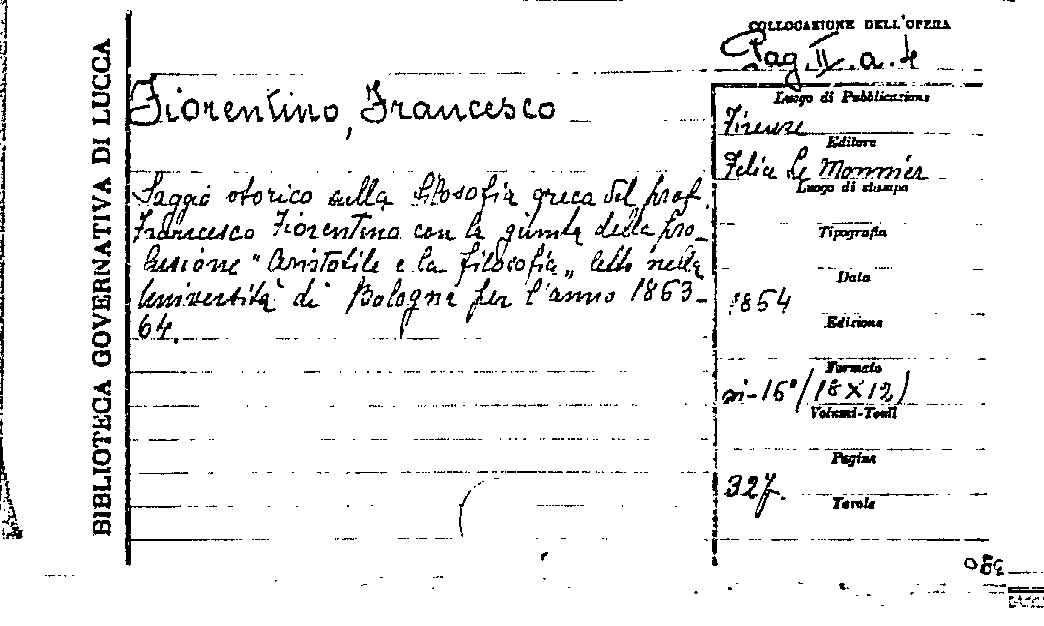 BIBLIOTECA GOVERNATIVA DI LUCCA
COLLOCAZIONE DELL'OPERA
Pag. II. a. 4
Fiorentino, Francesco
Saggio storico sulla filosofia greca del prof.
Francesco Fiorentino con la giunta della pro-
lusione "Aristotile e la filosofia„ letto nella
Università di Bologna per l'anno 1863-
64.
Luogo di Pubblicazione
Firenze
Editore
Felice Le Monnier
Luogo di stampa
Tipografia
Data
1864
Edizione
Formato
in-16°/(18×12)
Volumi-Tomi
Pagine
327.
Tavole